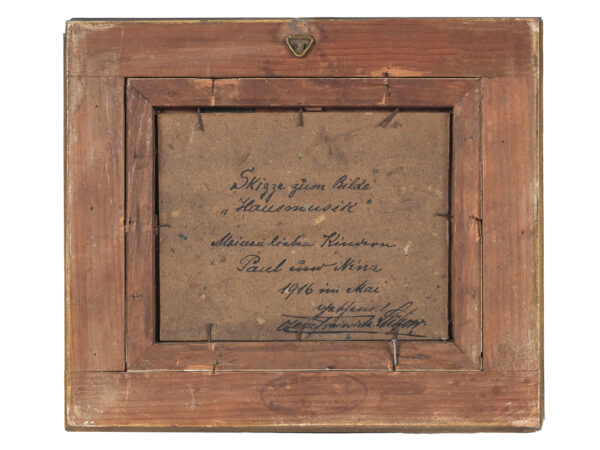 Skizze zum Bilde
„Hausmusik“
Meinen lieben Kindern
Paul und Nina
1916 im Mai